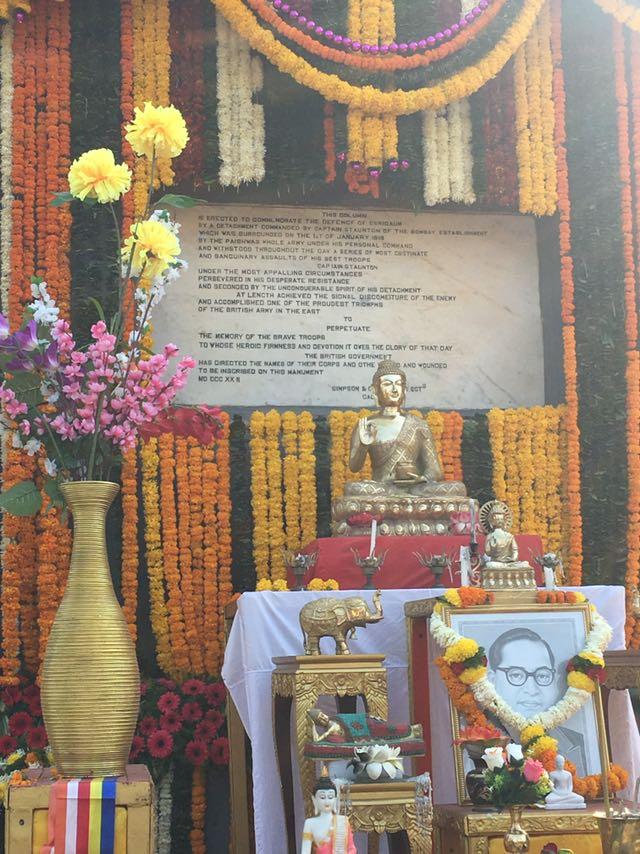 THIS COLUMN
IS ERECTED TO COMMEMORATE THE DEFENCE OF CORIGAUM
BY A DETACHMENT COMMANDED BY CAPTAIN STAUNTON OF THE BOMBAY ESTABLISHMENT
WHICH WAS SURROUNDED ON THE 1ST OF JANUARY 1818
BY THE PAISHWAS WHOLE ARMY UNDER HIS PERSONAL COMMAND
AND WITHSTOOD THROUGHOUT THE DAY A SERIES OF MOST OBSTINATE
AND SANGUINARY ASSAULTS OF HIS BEST TROOPS
CAPTAIN STAUNTON
UNDER THE MOST APPALLING CIRCUMSTANCES
PERSEVERED IN HIS DESPERATE RESISTANCE
AND SECONDED BY THE UNCONQUERABLE SPIRIT OF HIS DETACHMENT
AT LENGTH ACHIEVED THE SIGNAL DISCOMFITURE OF THE ENEMY
AND ACCOMPLISHED ONE OF THE PROUDEST TRIUMPHS
OF THE BRITISH ARMY IN THE EAST
TO
PERPETUATE
THE MEMORY OF THE BRAVE TROOPS
TO WHOSE HEROIC FIRMNESS AND DEVOTION IT OWES THE GLORY OF THAT DAY
THE BRITISH GOVERNMENT
HAS DIRECTED THE NAMES OF THEIR CORPS AND OF THE AND WOUNDED
TO BE INSCRIBED ON THIS MONUMENT
MD CCC XX II
SIMPSON &